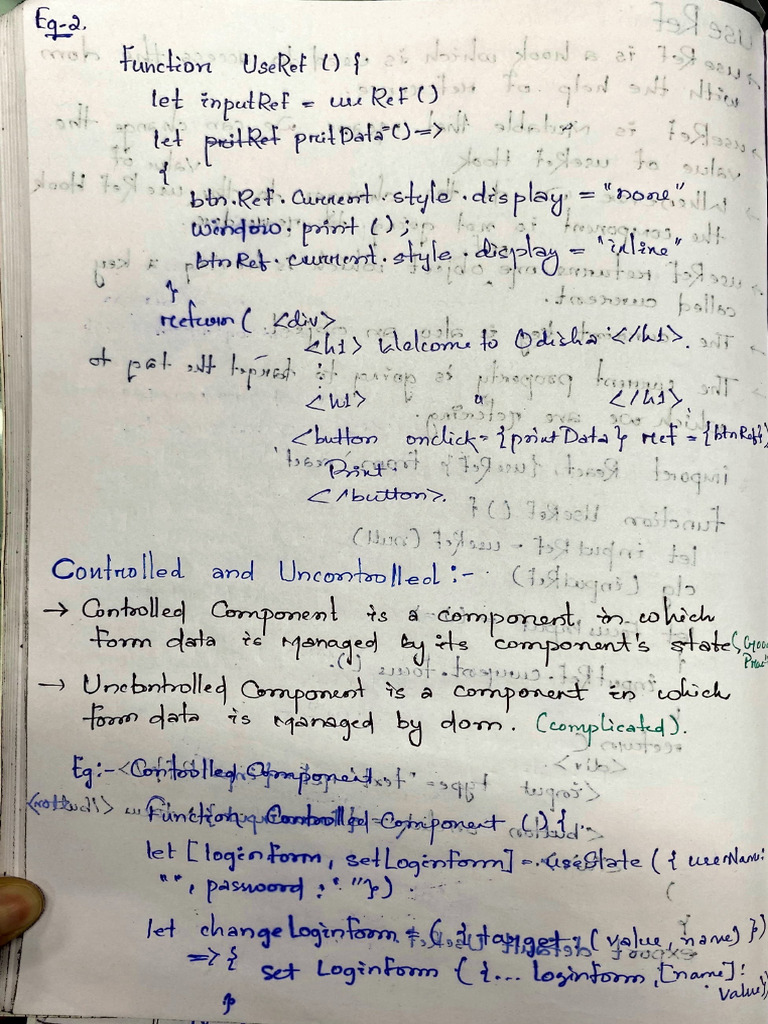 Eg-2.
Function UseRef () {
let inputRef = useRef ()
let printData = () =>
{
btn.Ref.Current.style.display = "none"
window.print ();
btnRef.current.style.display = "inline"
}
return ( <div>
<h1> Welcome to Odisha </h1>.
<h1> " </h1>
<button onclick = {printData} ref = {btnRef}
Print
</button>.
Controlled and Uncontrolled :-
→ Controlled Component is a component in which
form data is managed by its component's state (Good
Prac
→ Uncontrolled Component is a component in which
form data is managed by dom. (complicated).
Eg:- Controlled Component
Function Controlled Component () {
let [loginform, setLoginform] = useState ( { userName:
"", password : " " } )
let changeLoginform = ( { target : ( value, name) })
=> {
set Loginform ( {... loginform, [name]:
value}
}